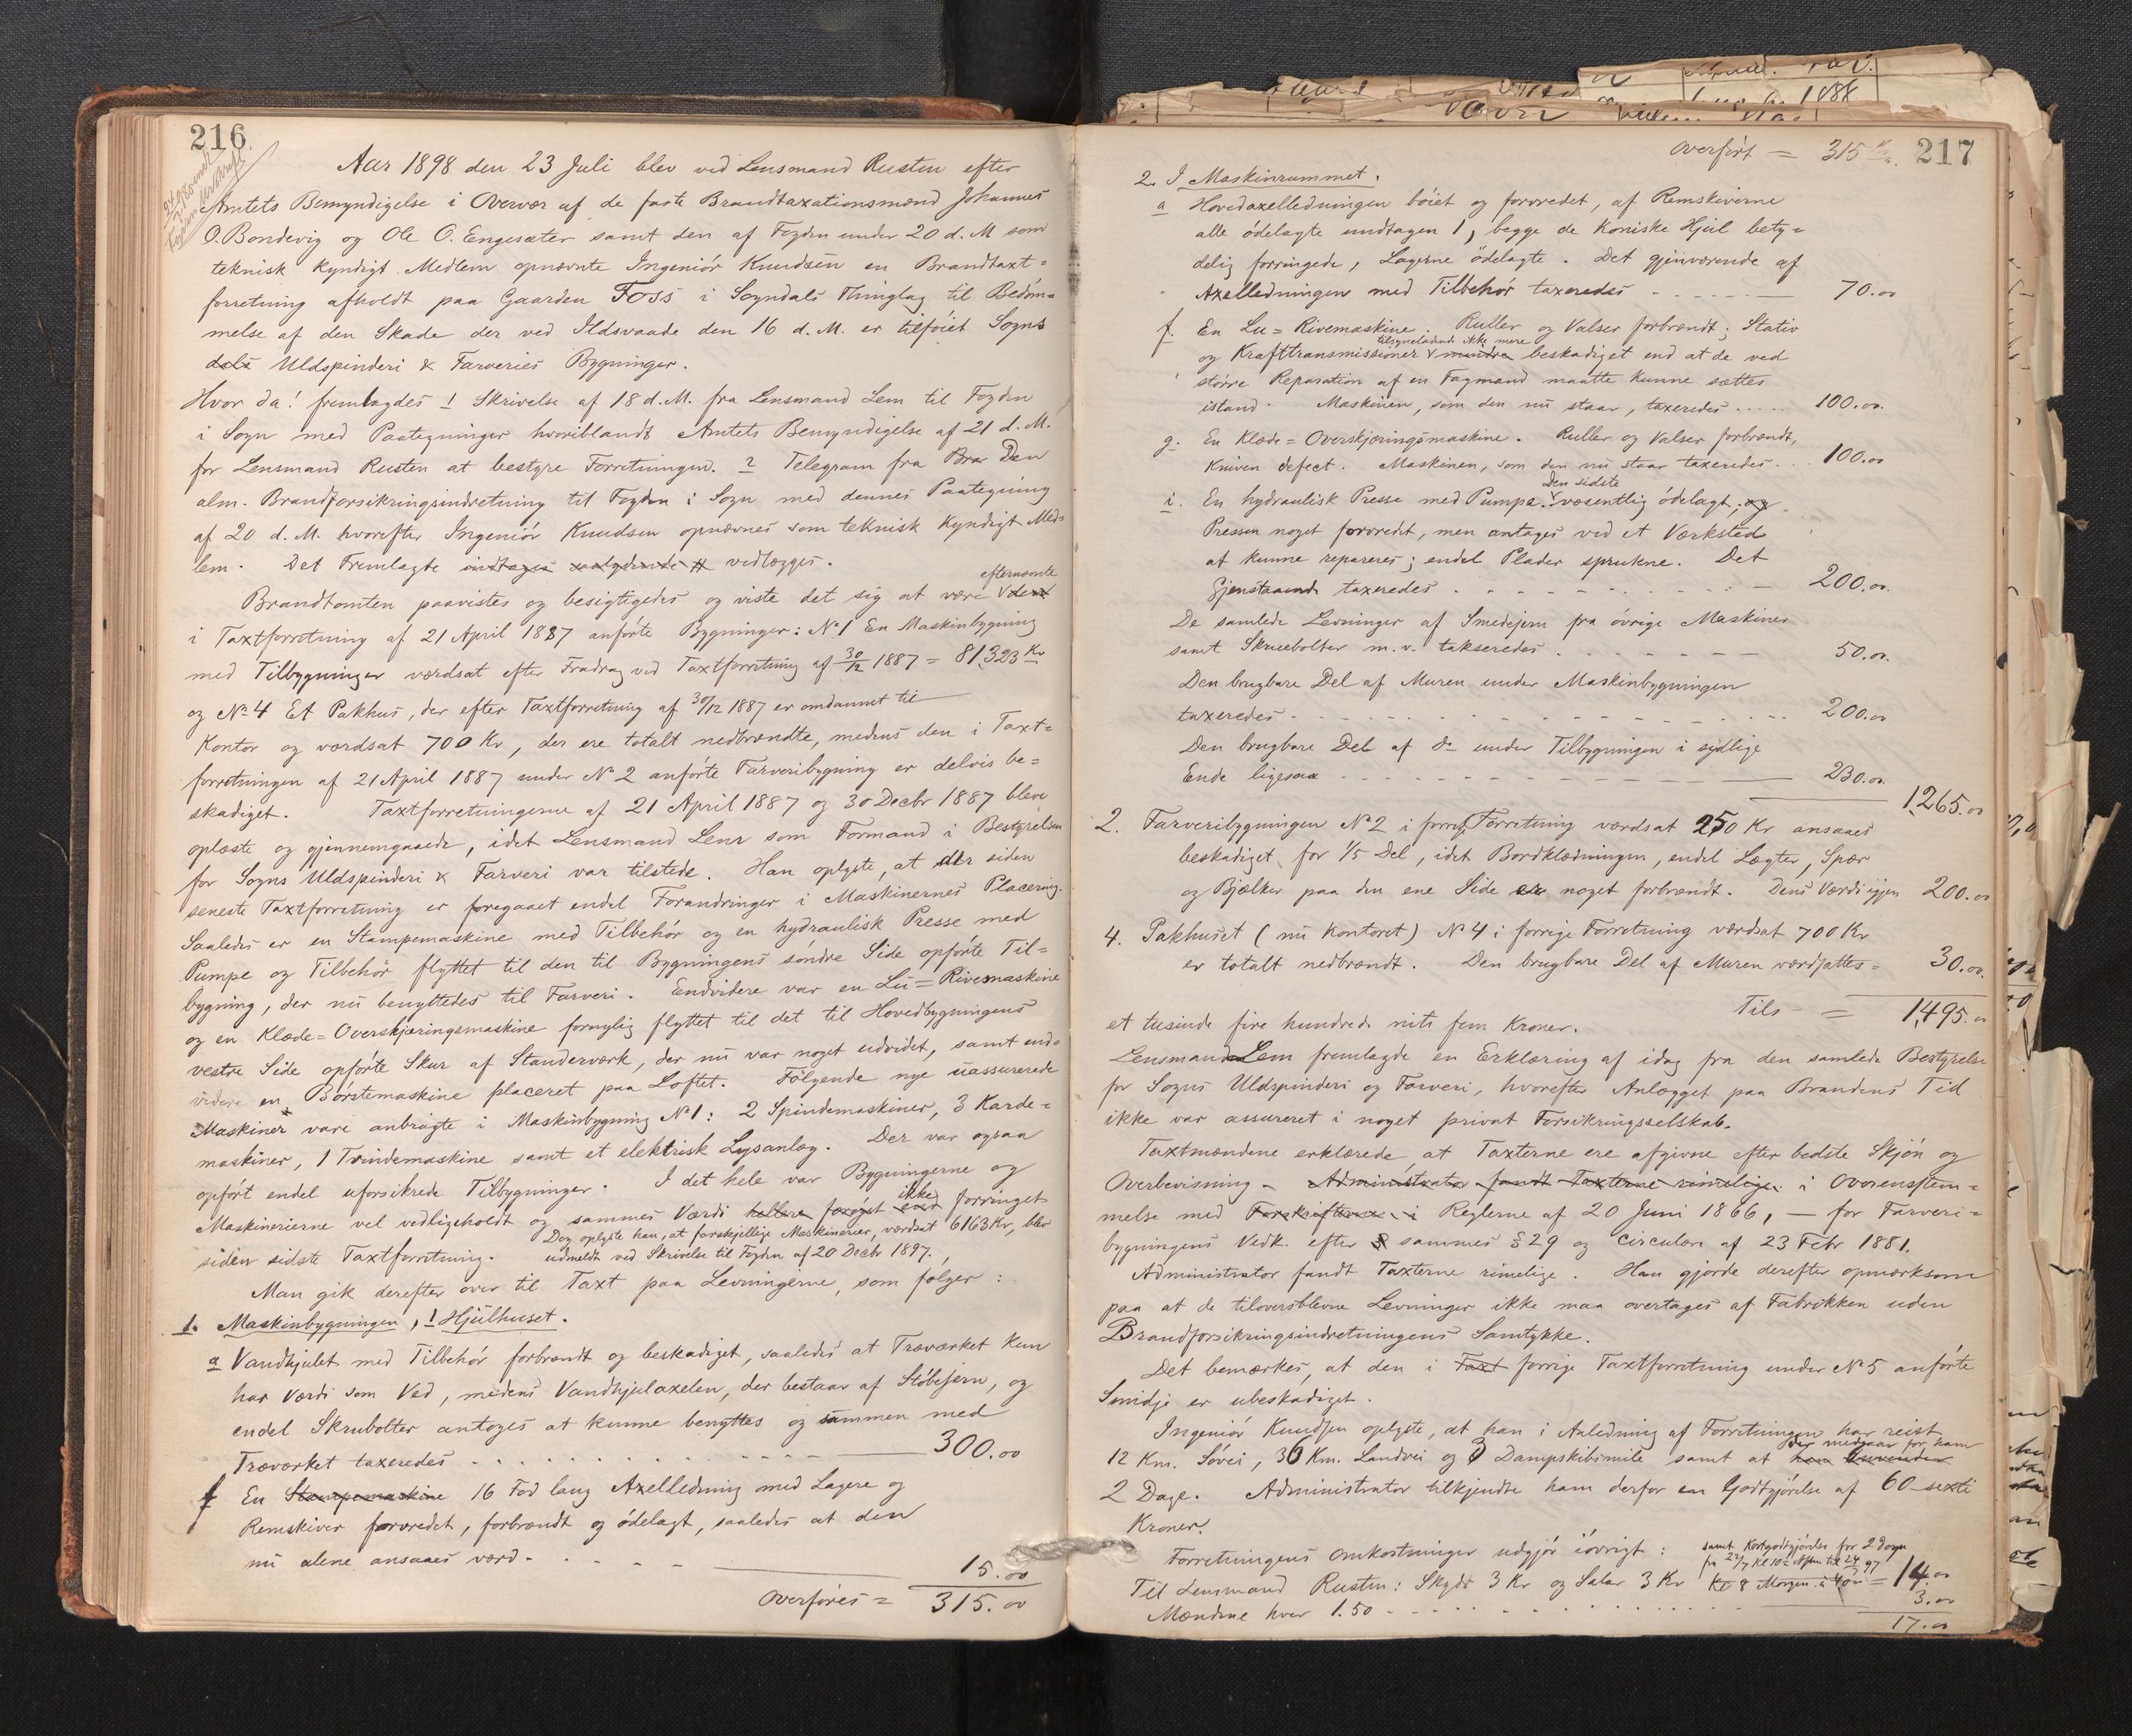 216
Aar 1898 den 23 Juli blev ved Lensmand Rusten efter
Amtets Bemyndigelse i Overvær af de faste Brandtaxationsmænd Johannes
O. Bondevig og Ole O. Engesæter samt den af Fogden under 20 d. M som
teknisk kyndigt Medlem opnævnte Ingeniör Knudsen en Brandtaxt=
forretning afholdt paa Gaarden Foss i Sogndals Thinglag til Bedöm=
melse af den Skade der ved Ildsvaade den 16 d. M. er tilföiet Sogns
dals Uldspinderi & Farveries Bygninger.
Hvor da! fremlagdes 1 Skrivelse af 18 d. M. fra Lensmand Lem til Fogden
i Sogn med Paategninger hvoriblandt Amtets Bemyndigelse af 21 d. M.
for Lensmand Rusten at bestyre Forretningen. 2 Telegram fra Bra Den
alm. Brandforsikringsindretning til Fogden i Sogn med dennes Paategning
af 20 d. M. hvorefter Ingeniör Knudsen opnævnes som teknisk kyndigt Med=
lem. Det Fremlagte indtages saalydende # vedlægges.
efternævnte
Brandtomten paavistes og besigtigedes og viste det sig at være V dent
i Taxtforretning af 21 April 1887 anförte Bygninger: No 1 En Maskinbygning
med Tilbygninger værdsat efter Fradrag ved Taxtforretning af 30/12 1887 = 81,323 Kr
og No 4 Et Pakhus, der efter Taxtforretning af 30/12 1887 er omdannet til
Kontor og værdsat 700 Kr, der ere totalt nedbrændte, medens den i Taxt=
forretningen af 21 April 1887 under No 2 anförte Farveribygning er delvis be=
skadiget. Taxtforretningerne af 21 April 1887 og 30 Decbr 1887 bleve
oplæste og gjennemgaaede, idet Lensmand Lem som Formand i Bestyrelsen
for Sogns Uldspinderi & Farveri var tilstede. Han oplyste, at der siden
seneste Taxtforretning er foregaaet endel Forandringer i Maskinernes Placering.
Saaledes er en Stampemaskine med Tilbehör og en hydraulisk Presse med
Pumpe og Tilbehör flyttet til den til Bygningens söndre Side opförte Til=
bygning, der nu benyttedes til Farveri. Endvidere var en Lu=Rivemaskine
og en Klæde=Overskjæringsmaskine fornylig flyttet til det til Hovedbygningens
vestre Side opförte Skur af Standerværk, der nu var noget udvidet, samt end=
videre en Börstemaskine placeret paa Loftet. Fölgende nye uassurerede
Maskiner vare anbragte i Maskinbygning No 1: 2 Spindemaskiner, 3 Karde=
maskiner, 1 Tvindemaskine samt et elektrisk Lysanlæg. Der var ogsaa
opfört endel uforsikrede Tilbygninger. I det hele var Bygningerne og
Maskinerierne vel vedligeholdt og sammes Værdi hellere forögst end ikke forringet
siden sidste Taxtforretning. Dog oplyste han, at forskjellige Maskinerier, værdsat 6163 Kr, blev
udmeldt ved Skrivelse til Fogden af 20 Decbr 1897.
Man gik derefter over til Taxt paa Levningerne, som fölger:
1. Maskinbygningen, 1 Hjulhuset.
a Vandhjulet med Tilbehör forbrændt og beskadiget, saaledes at Træværket kun
har Værdi som Ved, medens Vandhjulaxelen, der bestaar af Stöbejern, og
endel Skrubolter antages at kunne benyttes og sammen med
Træværket taxeredes 300.00
f En Stampemaskine 16 Fod lang Axelledning med Lagere og
Remskiver forvredet, forbrændt og ödelagt, saaledes at den
nu alene ansaaes værd 15.00
Overföres = 315.00
Overfört = 315 Kr. 217
2. I Maskinrummet.
a Hovedaxelledningen böiet og forvredet, af Remskiverne
alle ödelagte undtagen 1, begge de Koniske Hjul bety=
delig forringede, Lagerne ödelagte. Det gjenværende af
Axelledningen med Tilbehör taxeredes 70.00
f. En Lu=Rivemaskine. Ruller og Valser forbrændt; Stativ
tilsyneladende ikke mere
og Krafttransmissioner V mindre beskadiget end at de ved
större Reparation af en Fagmand maatte kunne sættes
istand. Maskinen, som den nu staar, taxeredes 100.00.
g. En Klæde=Overskjæringsmaskine. Ruller og Valser forbrændt,
Kniven defect. Maskinen, som den nu staar taxeredes 100.00
Den sidste
i. En hydraulisk Presse med Pumpe. V væsentlig ödelagt, og
Pressen noget forvredet, men antages ved et Værksted
at kunne repareres; endel Plader sprukne. Det
Gjenstaaende taxeredes 200.00.
De samlede Levninger af Smedejern fra övrige Maskiner
samt Skruebolter m. v. takseredes 50.00.
Den brugbare Del af Muren under Maskinbygningen
taxeredes 200.00
Den brugbare Del af do under Tilbygningen i sydlige
Ende ligesaa 230.00.
1,265.00
2. Farveribygningen No 2 i forrige Forretning værdsat 250 Kr ansaaes
beskadiget for 1/5 Del, idet Bordklædningen, endel Lægter, Spær
og Bjælker paa den ene Side er noget forbrændt. Dens Værdi igjen 200.00
4. Pakhuset (nu Kontoret) No 4 i forrige Forretning værdsat 700 Kr
er totalt nedbrændt. Den brugbare Del af Muren værdsattes = 30.00.
Tils = 1,495.00
et tusinde fire hundrede niti fem Kroner.
Lensmand Lem fremlagde en Erklæring af idag fra den samlede Bestyrelse
for Sogns Uldspinderi og Farveri, hvorefter Anlægget paa Brandens Tid
ikke var assureret i noget privat Forsikringsselskab.
Taxtmændene erklærede at Taxterne ere afgivne efter bedste Skjön og
Overbevisning - Administrator fandt Taxterne rimelige. i Overensstem=
melse med Forskrifterne i Reglerne af 20 Juni 1866, — for Farveri=
bygningens Vedk. efter § sammes § 29 og Circulære af 23 Febr 1881.
Administrator fandt Taxterne rimelige. Han gjorde derefter opmærksom
paa at de tiloversblevne Levninger ikke maa overtages af Fabrikken uden
Brandforsikringsindretningens Samtykke.
Det bemærkes, at den i Taxt forrige Taxtforretning under No 5 anförte
Smidje er ubeskadiget.
Ingeniör Knudsen oplyste, at han i Anledning af Forretningen har reist
der medgaar for ham
12 Km. Sövei, 36 Km. Landvei og 3 Dampskibsmile samt at han anvender
2 Dage. Administrator tilkjendte ham derfor en Godtgjörelse af 60 sexti
Kroner.
Forretningens Omkostninger udgjör iövrigt: samt Kostgodtgjörelse for 2 Dage
Til Lensmand Rusten: Skyds 3 Kr og Salær 3 Kr Kl 8 Morgen = 14.00
Mændene hver 1.50 3.00
17.00